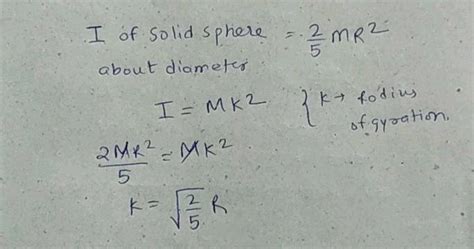 I of solid sphere = 2/5 MR²
about diameter
I = MK² { K → Radius
of gyration.
2MR²/5 = MK²
K = √(2/5) R